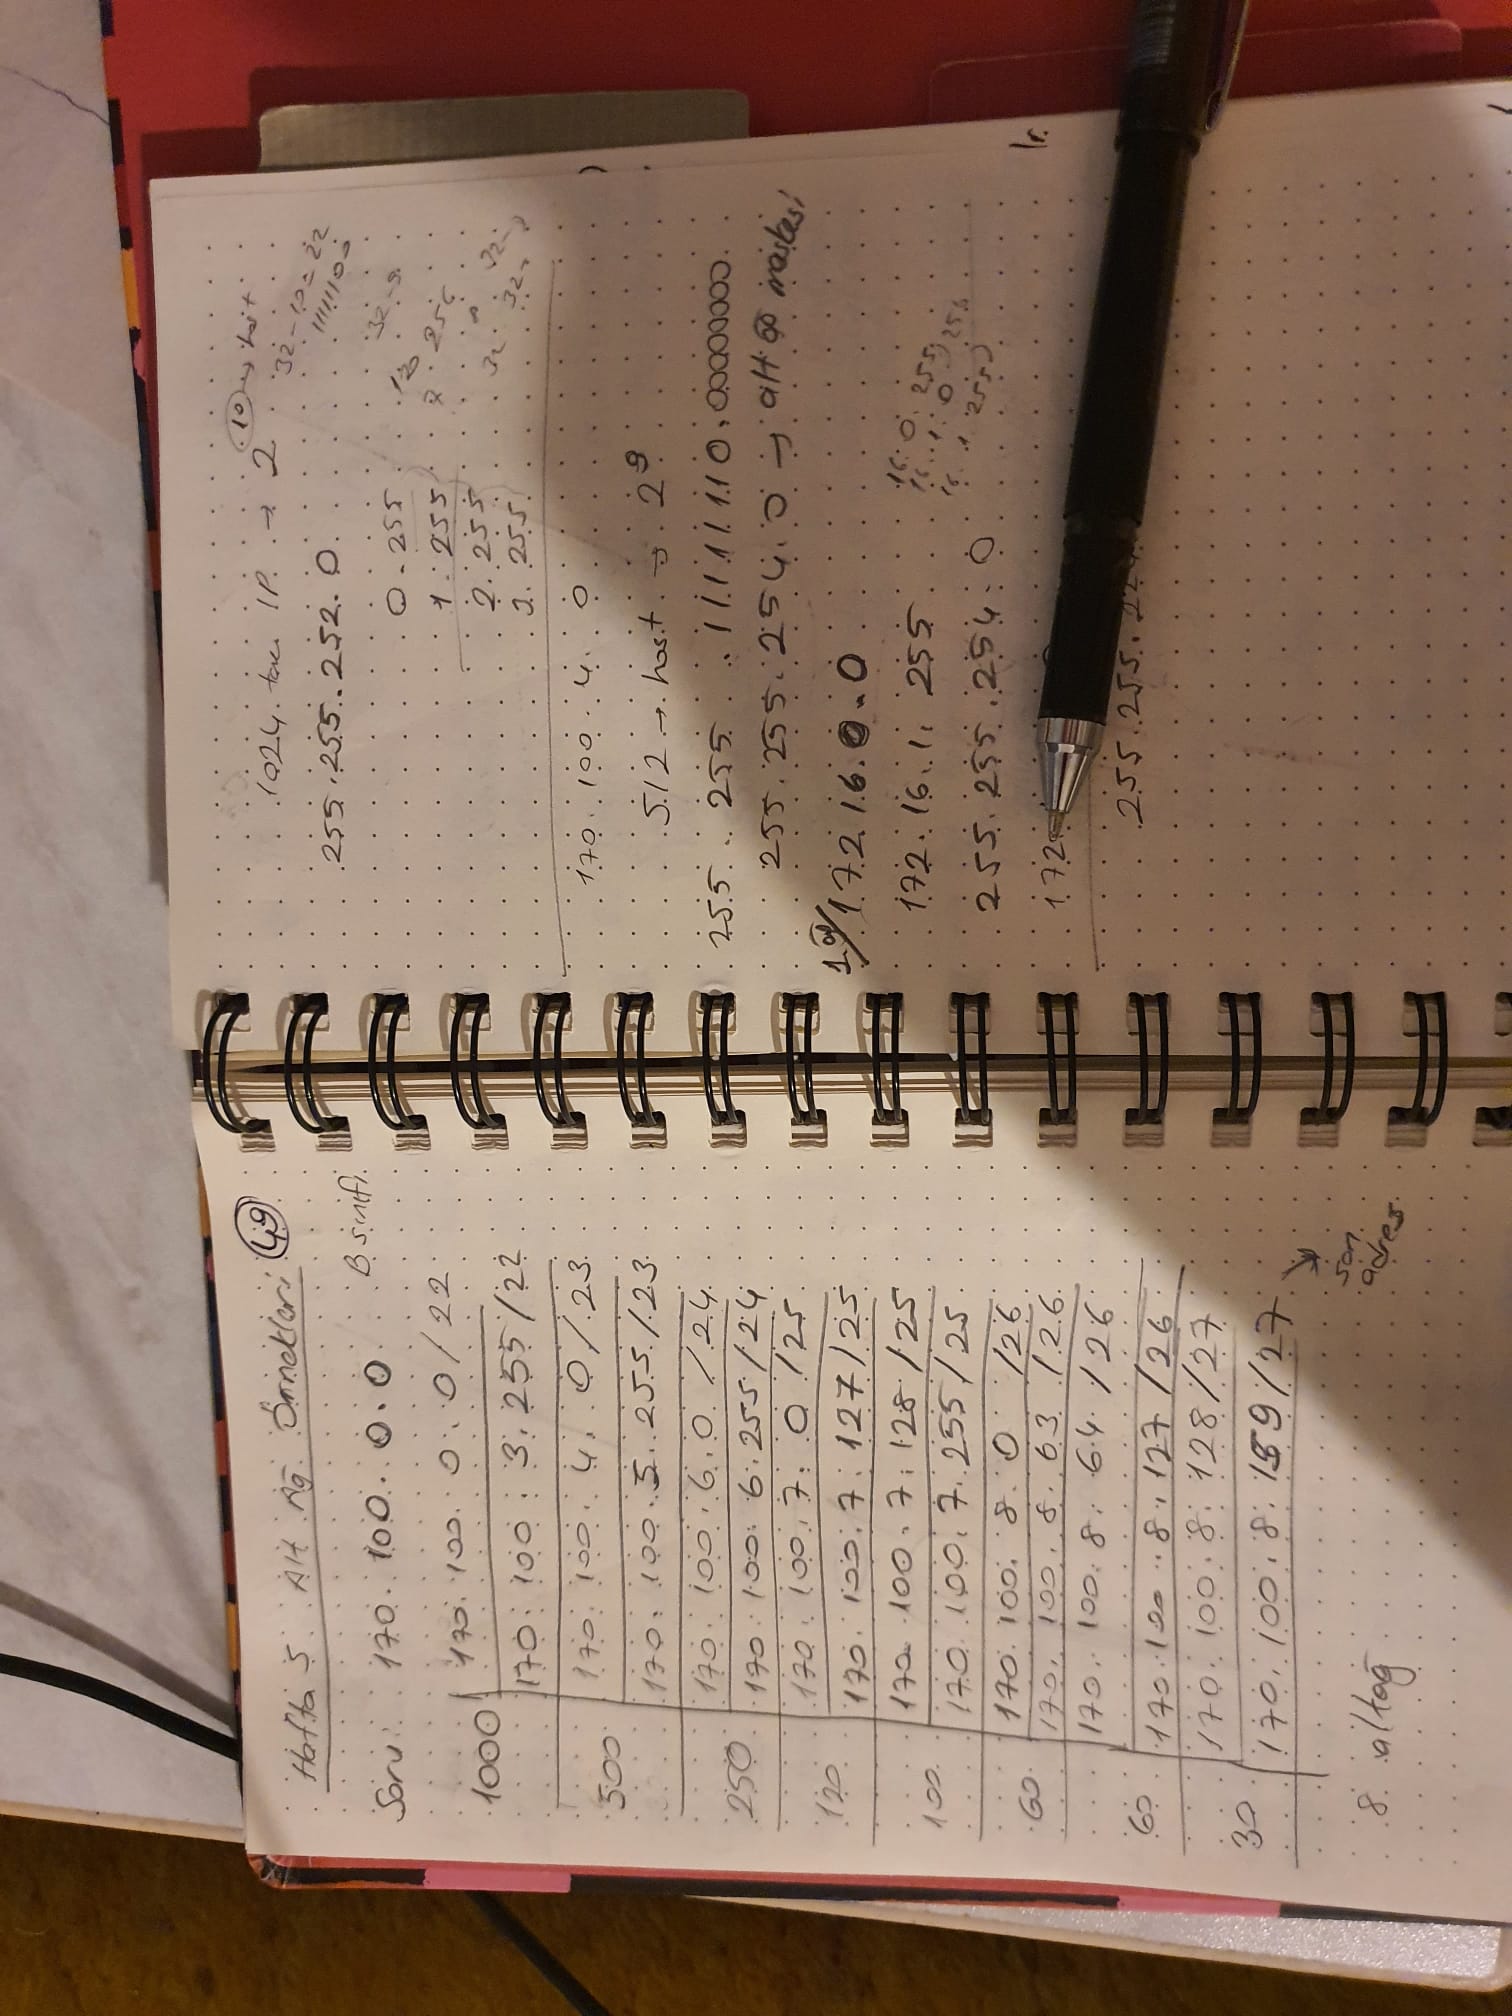 Hafta 5 Alt Ağ Örnekleri 49
Soru: 170.100.0.0 B sınıfı
1000
170.100.0.0/22
170.100.3.255/22
500
170.100.4.0/23
170.100.5.255/23
250
170.100.6.0/24
170.100.6.255/24
120
170.100.7.0/25
170.100.7.127/25
100
170.100.7.128/25
170.100.7.255/25
60
170.100.8.0/26
170.100.8.63/26
60
170.100.8.64/26
170.100.8.127/26
30
170.100.8.128/27
170.100.8.159/27
son adres
8 altağ
1024 tane IP → 2 10 → host
32-10=22
11111100
255.255.252.0
32-9
0.255
1.255
2.255
3.255
170.100.4.0
512 → host → 2⁹
255.255.11111110.00000000
255.255.254.0 → alt ağ maskesi
1.ağ 172.16.0.0
172.16.1.255
16.0.255
16.1.0
16.1.255
255.255.254.0
172.
255.255.22